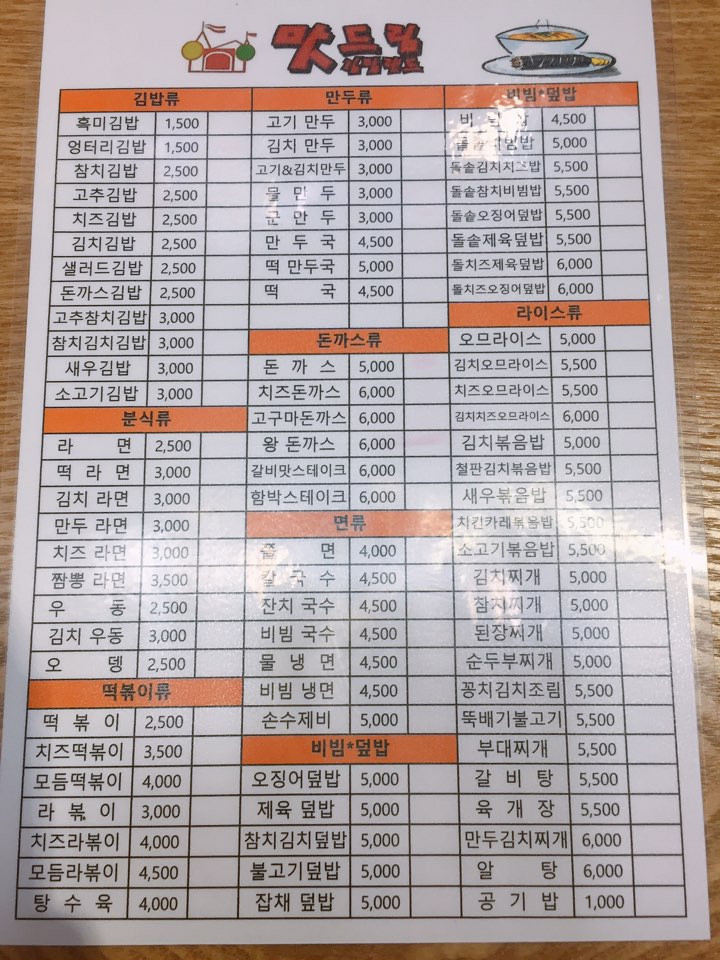 맛드림
김밥류
흑미김밥 1,500
엉터리김밥 1,500
참치김밥 2,500
고추김밥 2,500
치즈김밥 2,500
김치김밥 2,500
샐러드김밥 2,500
돈까스김밥 2,500
고추참치김밥 3,000
참치김치김밥 3,000
새우김밥 3,000
소고기김밥 3,000
분식류
라 면 2,500
떡 라 면 3,000
김치 라면 3,000
만두 라면 3,000
치즈 라면 3,000
짬뽕 라면 3,500
우 동 2,500
김치 우동 3,000
오 뎅 2,500
떡볶이류
떡 볶 이 2,500
치즈떡볶이 3,500
모듬떡볶이 4,000
라 볶 이 3,000
치즈라볶이 4,000
모듬라볶이 4,500
탕 수 육 4,000
만두류
고기 만두 3,000
김치 만두 3,000
고기&김치만두 3,000
물 만 두 3,000
군 만 두 3,000
만 두 국 4,500
떡 만두국 5,000
떡 국 4,500
돈까스류
돈 까 스 5,000
치즈돈까스 6,000
고구마돈까스 6,000
왕 돈까스 6,000
갈비맛스테이크 6,000
함박스테이크 6,000
면류
쫄 면 4,000
칼 국 수 4,500
잔치 국수 4,500
비빔 국수 4,500
물 냉 면 4,500
비빔 냉면 4,500
손수제비 5,000
비빔*덮밥
오징어덮밥 5,000
제육 덮밥 5,000
참치김치덮밥 5,000
불고기덮밥 5,000
잡채 덮밥 5,000
비빔*덮밥
비 빔 밥 4,500
5,000
돌솥김치치즈밥 5,500
돌솥참치비빔밥 5,500
돌솥오징어덮밥 5,500
돌솥제육덮밥 5,500
돌치즈제육덮밥 6,000
돌치즈오징어덮밥 6,000
라이스류
오므라이스 5,000
김치오므라이스 5,500
치즈오므라이스 5,500
김치치즈오므라이스 6,000
김치볶음밥 5,000
철판김치볶음밥 5,500
새우볶음밥 5,500
치킨카레볶음밥 5,500
소고기볶음밥 5,500
김치찌개 5,000
참치찌개 5,000
된장찌개 5,000
순두부찌개 5,000
꽁치김치조림 5,500
뚝배기불고기 5,500
부대찌개 5,500
갈 비 탕 5,500
육 개 장 5,500
만두김치찌개 6,000
알 탕 6,000
공 기 밥 1,000